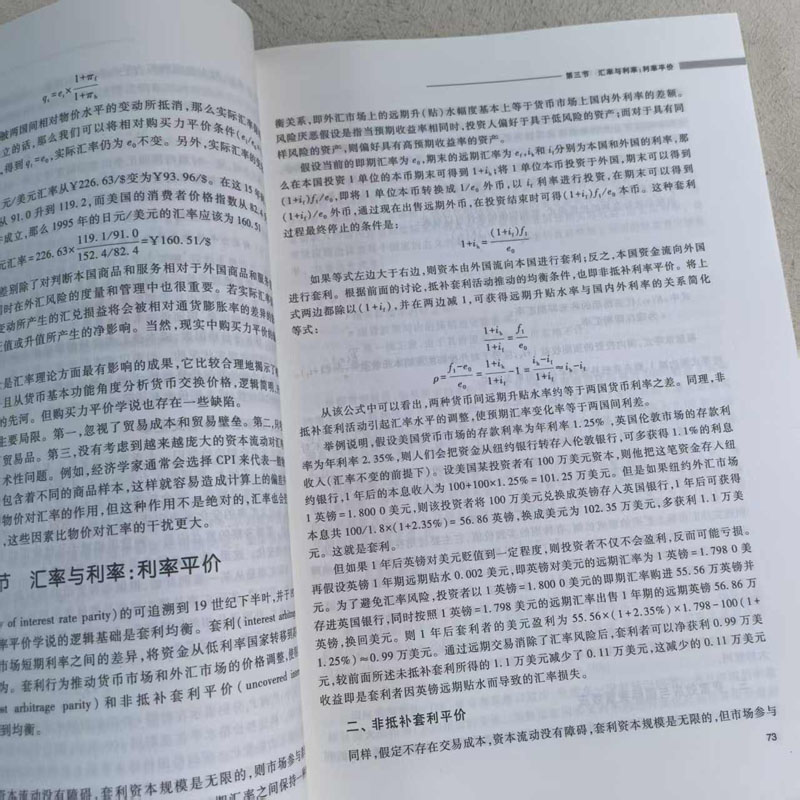 q₁=e₁×(1+π_f)/(1+π_h)
被两国间相对物价水平的变动所抵消，那么实际汇率
立的话，那么我们可以将相对购买力平价条件(e₁/e₀
，得到 q₁=e₀，实际汇率仍为 e₀ 不变。另外，实际汇率的
元/美元汇率从¥226.63/$变为¥93.96/$。在这 15 年
从 91.0 升到 119.2，而美国的消费者价格指数从 82.4
成立，那么 1995 年的日元/美元的汇率应该为 160.51
元汇率=226.63×(119.1/91.0)/(152.4/82.4)=¥160.51/$
差别除了对判断本国商品和服务相对于外国商品和服务
同时在外汇风险的度量和管理中也很重要。若实际汇率
变动所产生的汇兑损益将会被相对通货膨胀率的差异
值或升值所产生的净影响。当然，现实中购买力平价
是汇率理论方面最有影响的成果，它比较合理地揭示了
且从货币基本功能角度分析货币交换价格，逻辑简明，
的先河。但购买力平价学说也存在一些缺陷。
主要局限。第一，忽视了贸易成本和贸易壁垒。第二，
贸易品。第三，没有考虑到越来越庞大的资本流动对汇
术性问题。例如，经济学家通常会选择 CPI 来代表一般
包含着不同的商品样本，这样就容易造成计算上的偏差
物价对汇率的作用，但这种作用不是绝对的，汇率也会
，这些因素比物价对汇率的干扰更大。
节 汇率与利率：利率平价
y of interest rate parity)的可追溯到 19 世纪下半叶，并于
率平价学说的逻辑基础是套利均衡。套利(interest arbitrage
市场短期利率之间的差异，将资金从低利率国家转移到
为。套利行为推动货币市场和外汇市场的价格调整，使
est arbitrage parity)和非抵补套利平价(uncovered
到均衡。
资本流动没有障碍，套利资本规模是无限的，则市场参与
期汇率之间保持一种
第三节 汇率与利率：利率平价
衡关系，即外汇市场上的远期升(贴)水幅度基本上等于货币市场上国内外利率的差额。
风险厌恶假设是指当预期收益率相同时，投资人偏好于具于低风险的资产；而对于具有同
样风险的资产，则偏好具有高预期收益率的资产。
假设当前的即期汇率为 e₀，期末的远期汇率为 e_f，i_h和 i_f分别为本国和外国的利率，那
么在本国投资 1 单位的本币期末可得到 1+i_h；将 1 单位本币投资于外国，期末可以得到
(1+i_f)f₁/e₀，即将 1 单位本币转换成 1/e₀ 外币，以 i_f 利率进行投资，在期末可以得到
(1+i_f)/e₀ 外币，通过现在出售远期外币，在投资结束时可得(1+i_f)f₁/e₀ 本币。这种套利
过程最终停止的条件是：
1+i_h=(1+i_f)f₁/e₀
如果等式左边大于右边，则资本由外国流向本国进行套利；反之，本国资金流向外国
进行套利。根据前面的讨论，抵补套利活动推动的均衡条件，也即非抵补利率平价。将上
式两边都除以(1+i_f)，并在两边减 1，可获得远期升贴水率与国内外利率的关系简化
等式：
(1+i_h)/(1+i_f)=f₁/e₀
ρ=(f₁-e₀)/e₀=(1+i_h)/(1+i_f)-1=(i_h-i_f)/(1+i_f)≈i_h-i_f
从该公式中可以看出，两种货币间远期升贴水率约等于两国货币利率之差。同理，非
抵补套利活动引起汇率水平的调整，使预期汇率变化率等于两国间利差。
举例说明，假设美国货币市场的存款利率为年利率 1.25%，英国伦敦市场的存款利
率为年利率 2.35%，则人们会把资金从纽约银行转存入伦敦银行，可多获得 1.1%的利息
收入(汇率不变的前提下)。设美国某投资者有 100 万美元资本，则他把这笔资金存入纽
约银行，1 年后的本息收入为 100+100×1.25%=101.25 万美元。但是如果纽约外汇市场
1 英镑=1.800 0 美元，则该投资者将 100 万美元兑换成英镑存入英国银行，1 年后可获得
本息共 100/1.8×(1+2.35%)=56.86 英镑，换成美元为 102.35 万美元，多获利 1.1 万美
元。这就是套利。
但如果 1 年后英镑对美元贬值到一定程度，则投资者不仅不会盈利，反而可能亏损。
再假设英镑 1 年期远期贴水 0.002 美元，即英镑对美元的远期汇率为 1 英镑=1.798 0 美
元。为了避免汇率风险，投资者以 1 英镑=1.800 0 美元的即期汇率购进 55.56 万英镑并
存进英国银行，同时按照 1 英镑=1.798 美元的远期汇率出售 1 年期的远期英镑 56.86 万
英镑，换回美元。则 1 年后套利者的美元盈利为 55.56×(1+2.35%)×1.798-100(1+
1.25%)≈0.99 万美元。通过远期交易消除了汇率风险后，套利者可以净获利 0.99 万美
元，较前面所述未抵补套利所得的 1.1 万美元减少了 0.11 万美元，这减少的 0.11 万美元
收益即是套利者因英镑远期贴水而导致的汇率损失。
二、非抵补套利平价
同样，假定不存在交易成本，资本流动没有障碍，套利资本规模是无限的，但市场参与
73